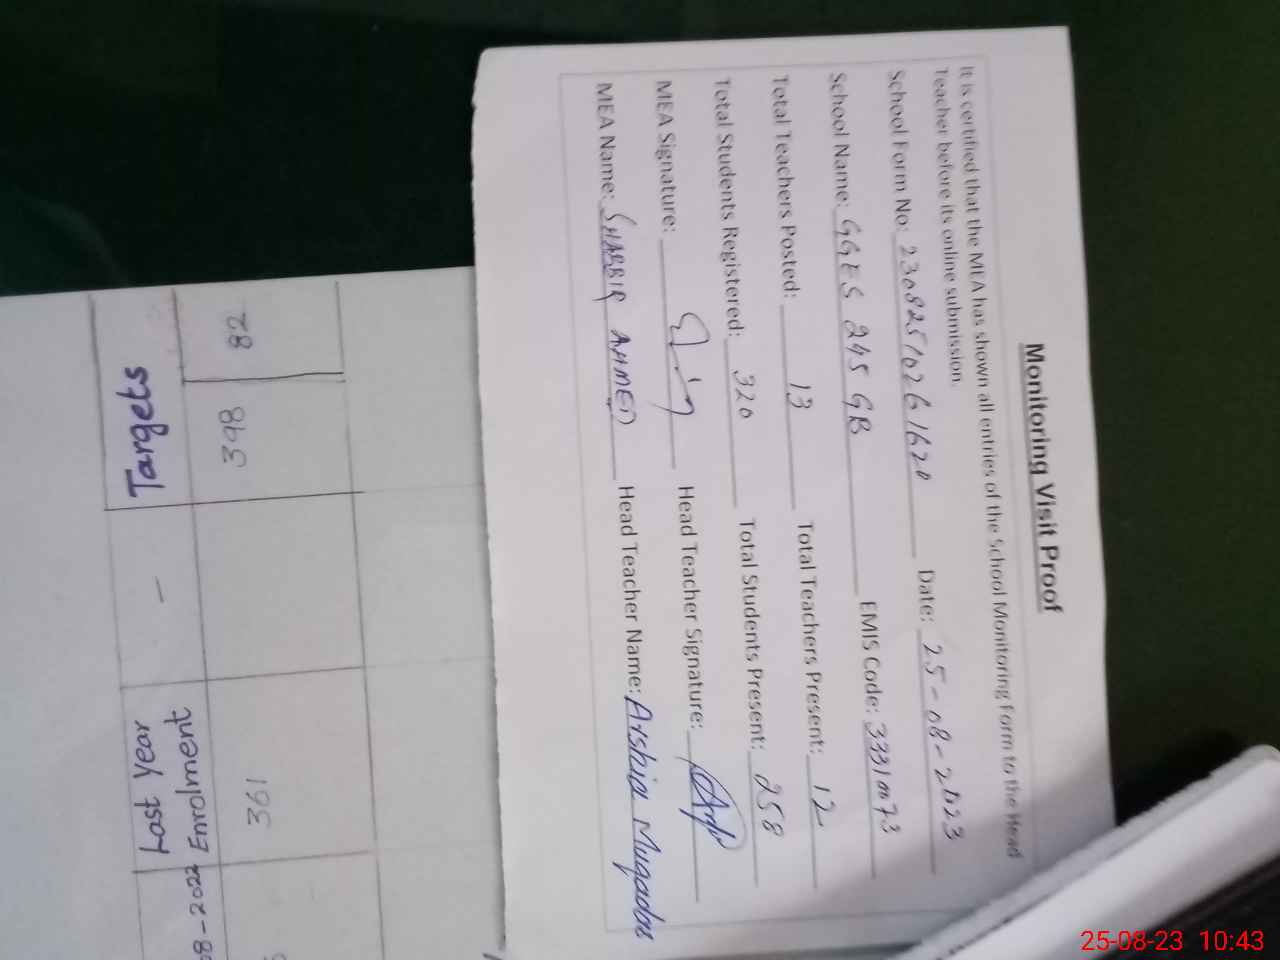 Monitoring Visit Proof
It is certified that the MEA has shown all entries of the School Monitoring Form to the Head
Teacher before its online submission.
School Form No: 2308251026 1620 Date: 25-08-2023
School Name: GGES 245 GB EMIS Code: 33310073
Total Teachers Posted: 13 Total Teachers Present: 12
Total Students Registered: 320 Total Students Present: 258
MEA Signature: Head Teacher Signature:
MEA Name: SHABBIR AHMED Head Teacher Name: Arshia
Targets
398 82
-
Last Year
Enrolment
361
08-2022
25-08-23 10:43